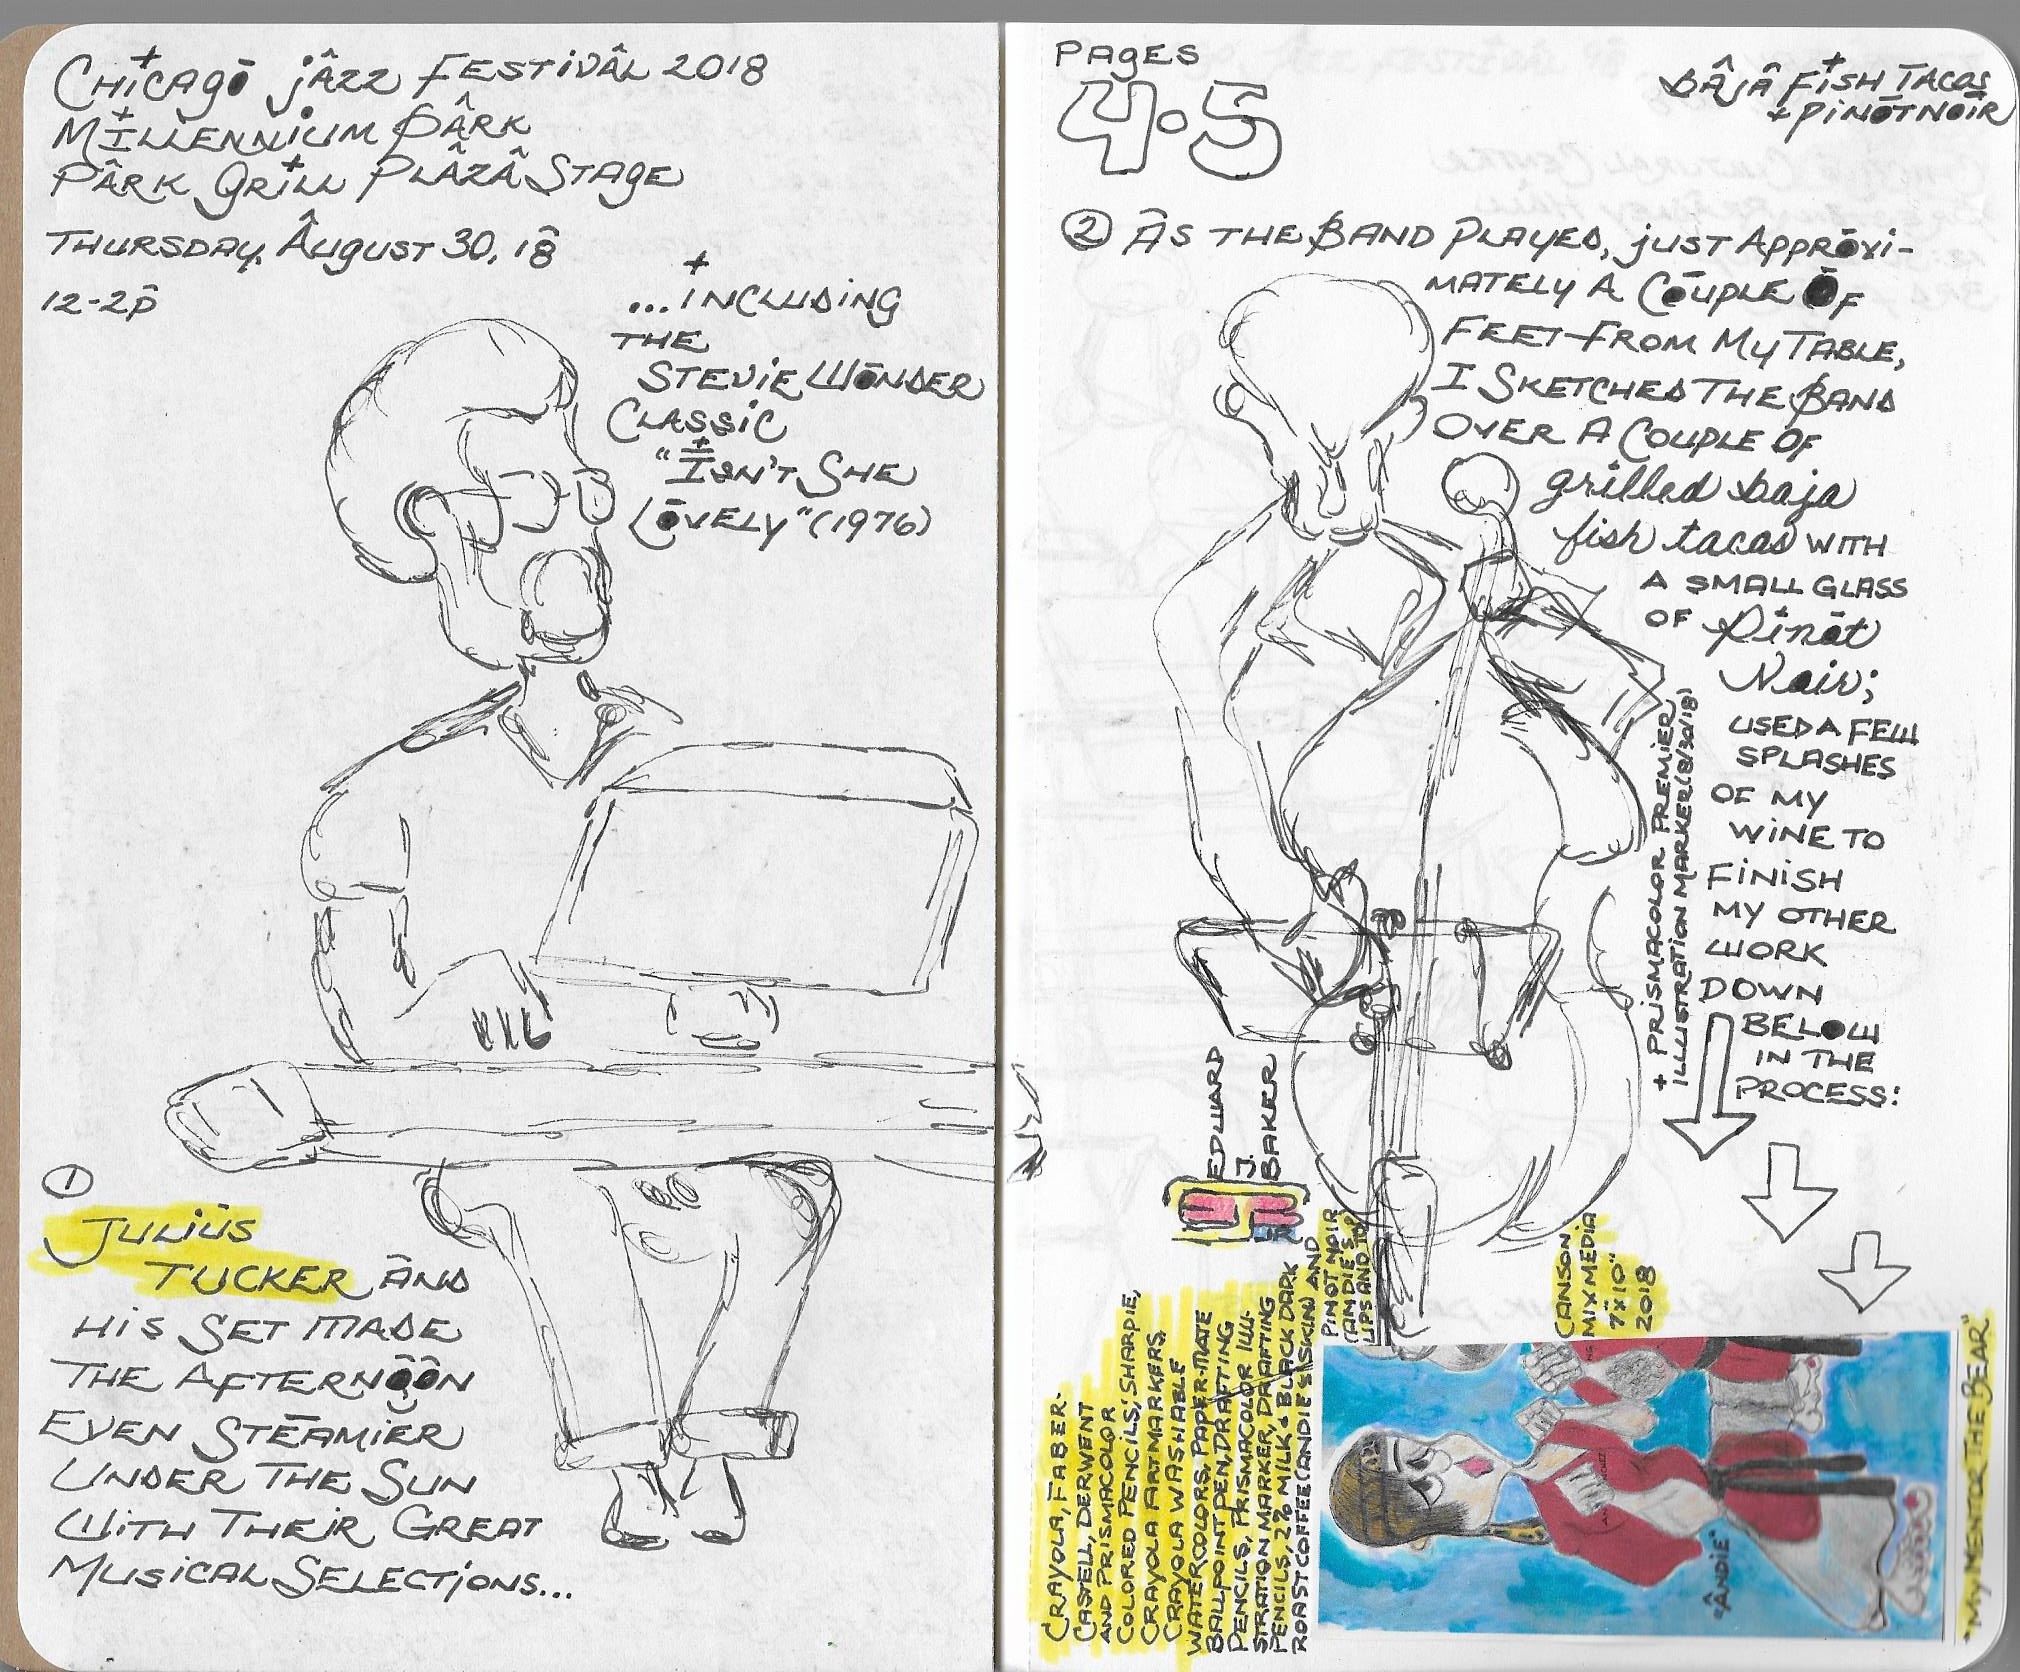 Chicago Jazz Festival 2018
Millennium Park
Park Grill Plaza Stage
Thursday, August 30, 18
12-2p
...including
the
Stevie Wonder
Classic
"Isn't She
Lovely" (1976)
1
Julius
Tucker and
his set made
the afternoon
even steamier
under the sun
with their great
musical selections...
Pages
4-5
Baja Fish Tacos
+ Pinot Noir
2 As the band played, just approxi-
mately a couple of
feet from my table,
I sketched the band
over a couple of
grilled baja
fish tacos with
a small glass
of Pinot
Noir;
used a few
splashes
of my
wine to
finish
my other
work
down
below
in the
process:
+ Prismacolor Premier
Illustration Marker (8/30/18)
Edward
J.
Baker
Canson
Mix Media
7"x10"
2018
Crayola, Faber-
Castell, Derwent
and Prismacolor
colored pencils, Sharpie,
Crayola Art Markers,
Crayola washable
watercolors, Paper-Mate
ballpoint pen, drafting
pencils, Prismacolor Illu-
stration Marker, drafting
pencils, 2% milk & black dark
roast coffee (Andie's skin) and
Pinot Noir
(Andie's
lips and top)
"Andie"
"My Mentor the Bear"